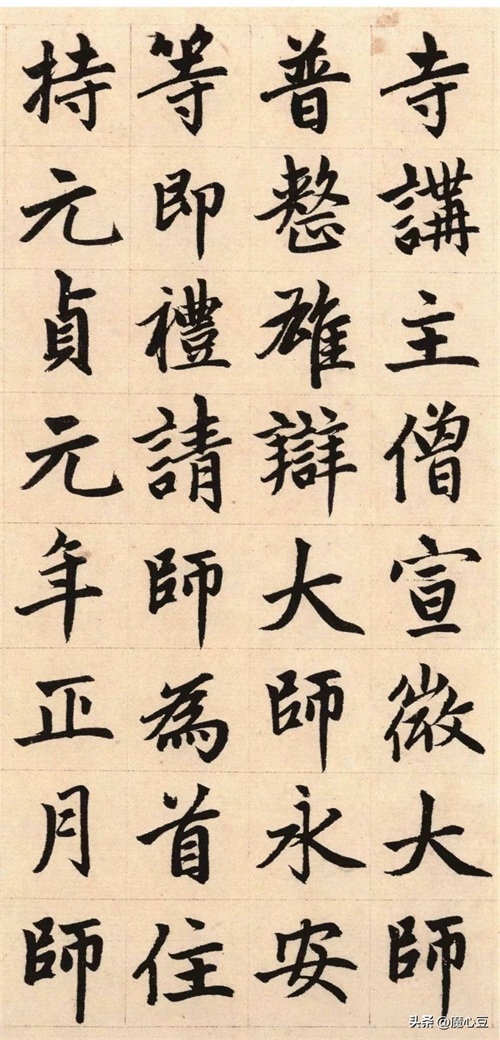 寺講主僧宣微大師
普整雄辯大師永安
等即禮請師為首住
持元貞元年正月師
头条 @魔心豆